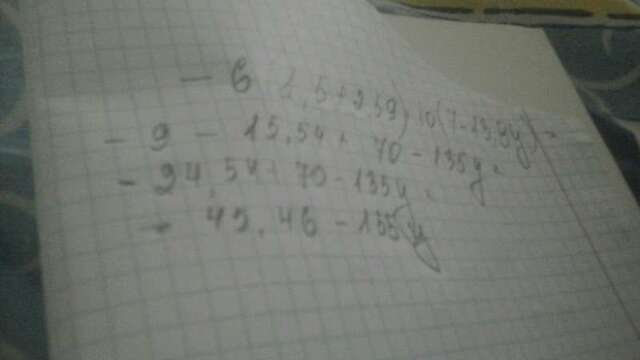 - 6 1,5+2,59) 10(7-13,5y)=
- 9 - 15,54 + 70 - 135y =
- 24,54 + 70 - 135y =
= 45,46 - 135y